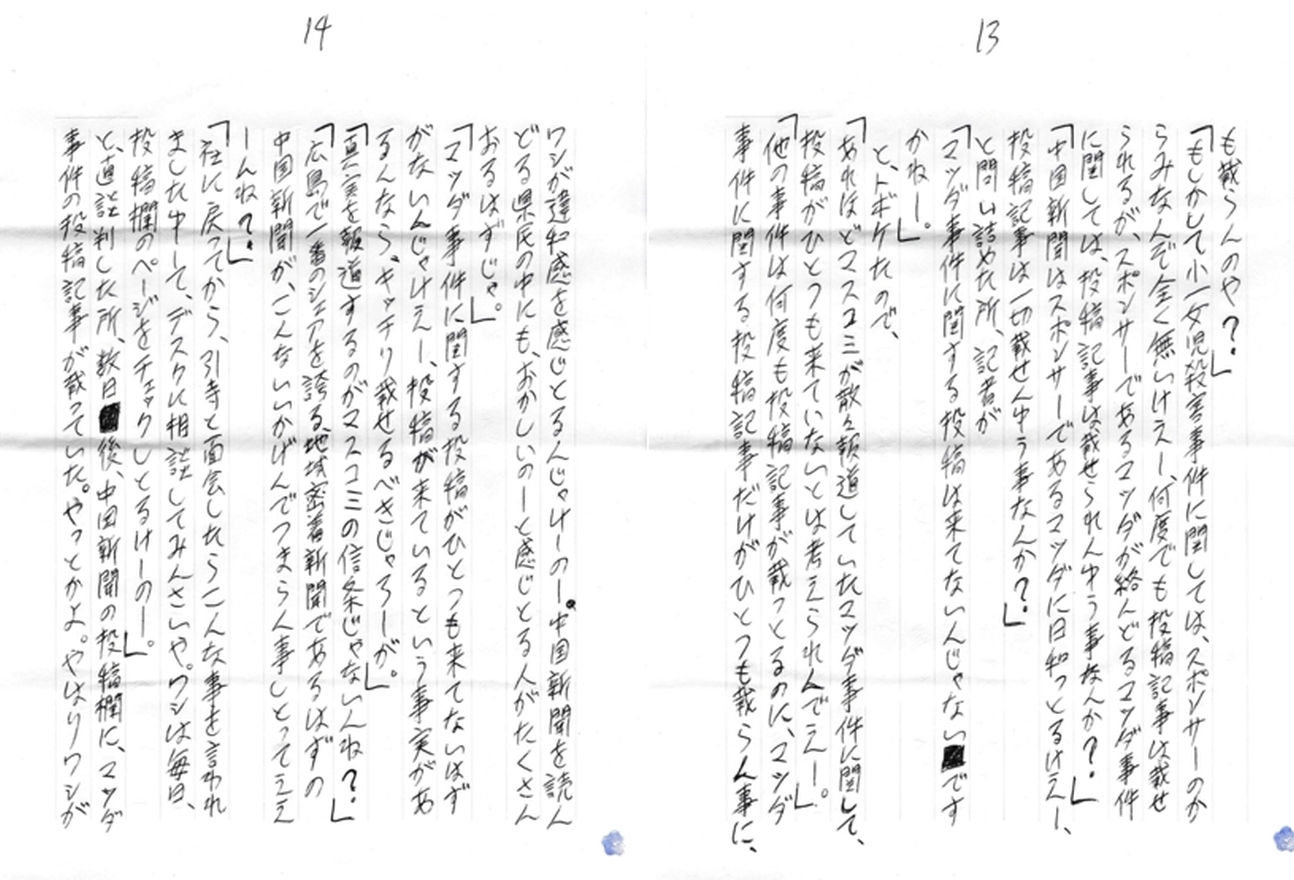 13
も載らんのや？」
「もしかして小一女児殺害事件に関しては、スポンサーのか
らみなんで全く無いけえー、何度でも投稿記事は載せ
られるが、スポンサーであるマツダが絡んどるマツダ事件
に関しては、投稿記事は載せられんゆう事なんか？」
「中国新聞はスポンサーであるマツダに日和っとるけえー、
投稿記事は一切載せんゆう事なんか？」
と問い詰めた所、記者が
「マツダ事件に関する投稿は来てないんじゃないですか
かねー。」
と、トボケたので、
「あれほどマスコミが散々報道していたマツダ事件に関して、
投稿がひとつも来ていないとは考えられんでえー。」
「他の事件は何度も投稿記事が載っとるのに、マツダ
事件に関する投稿記事だけがひとつも載らん事に、
14
ワシが違和感を感じとるんじゃけーのー。中国新聞を読ん
どる県民の中にも、おかしいのーと感じとる人がたくさん
おるはずじゃ。」
「マツダ事件に関する投稿がひとつも来てないはず
がないんじゃけえー、投稿が来ているという事実があ
るんなら、キッチリ載せるべきじゃろーが。」
「真実を報道するのがマスコミの信条じゃないんね？」
「広島で一番のシェアを誇る地域密着新聞であるはずの
中国新聞が、こんないいかげんでつまらん事しとってええ
ーんね？」
「社に戻ってから、引寺と面会したらこんな事を言われ
ましたゆーて、デスクに相談してみんさいや。ワシは毎日、
投稿欄のページをチェックしとるけーのー。」
と、直談判した所、数日後、中国新聞の投稿欄に、マツダ
事件の投稿記事が載っていた。やっとかよ。やはりワシが